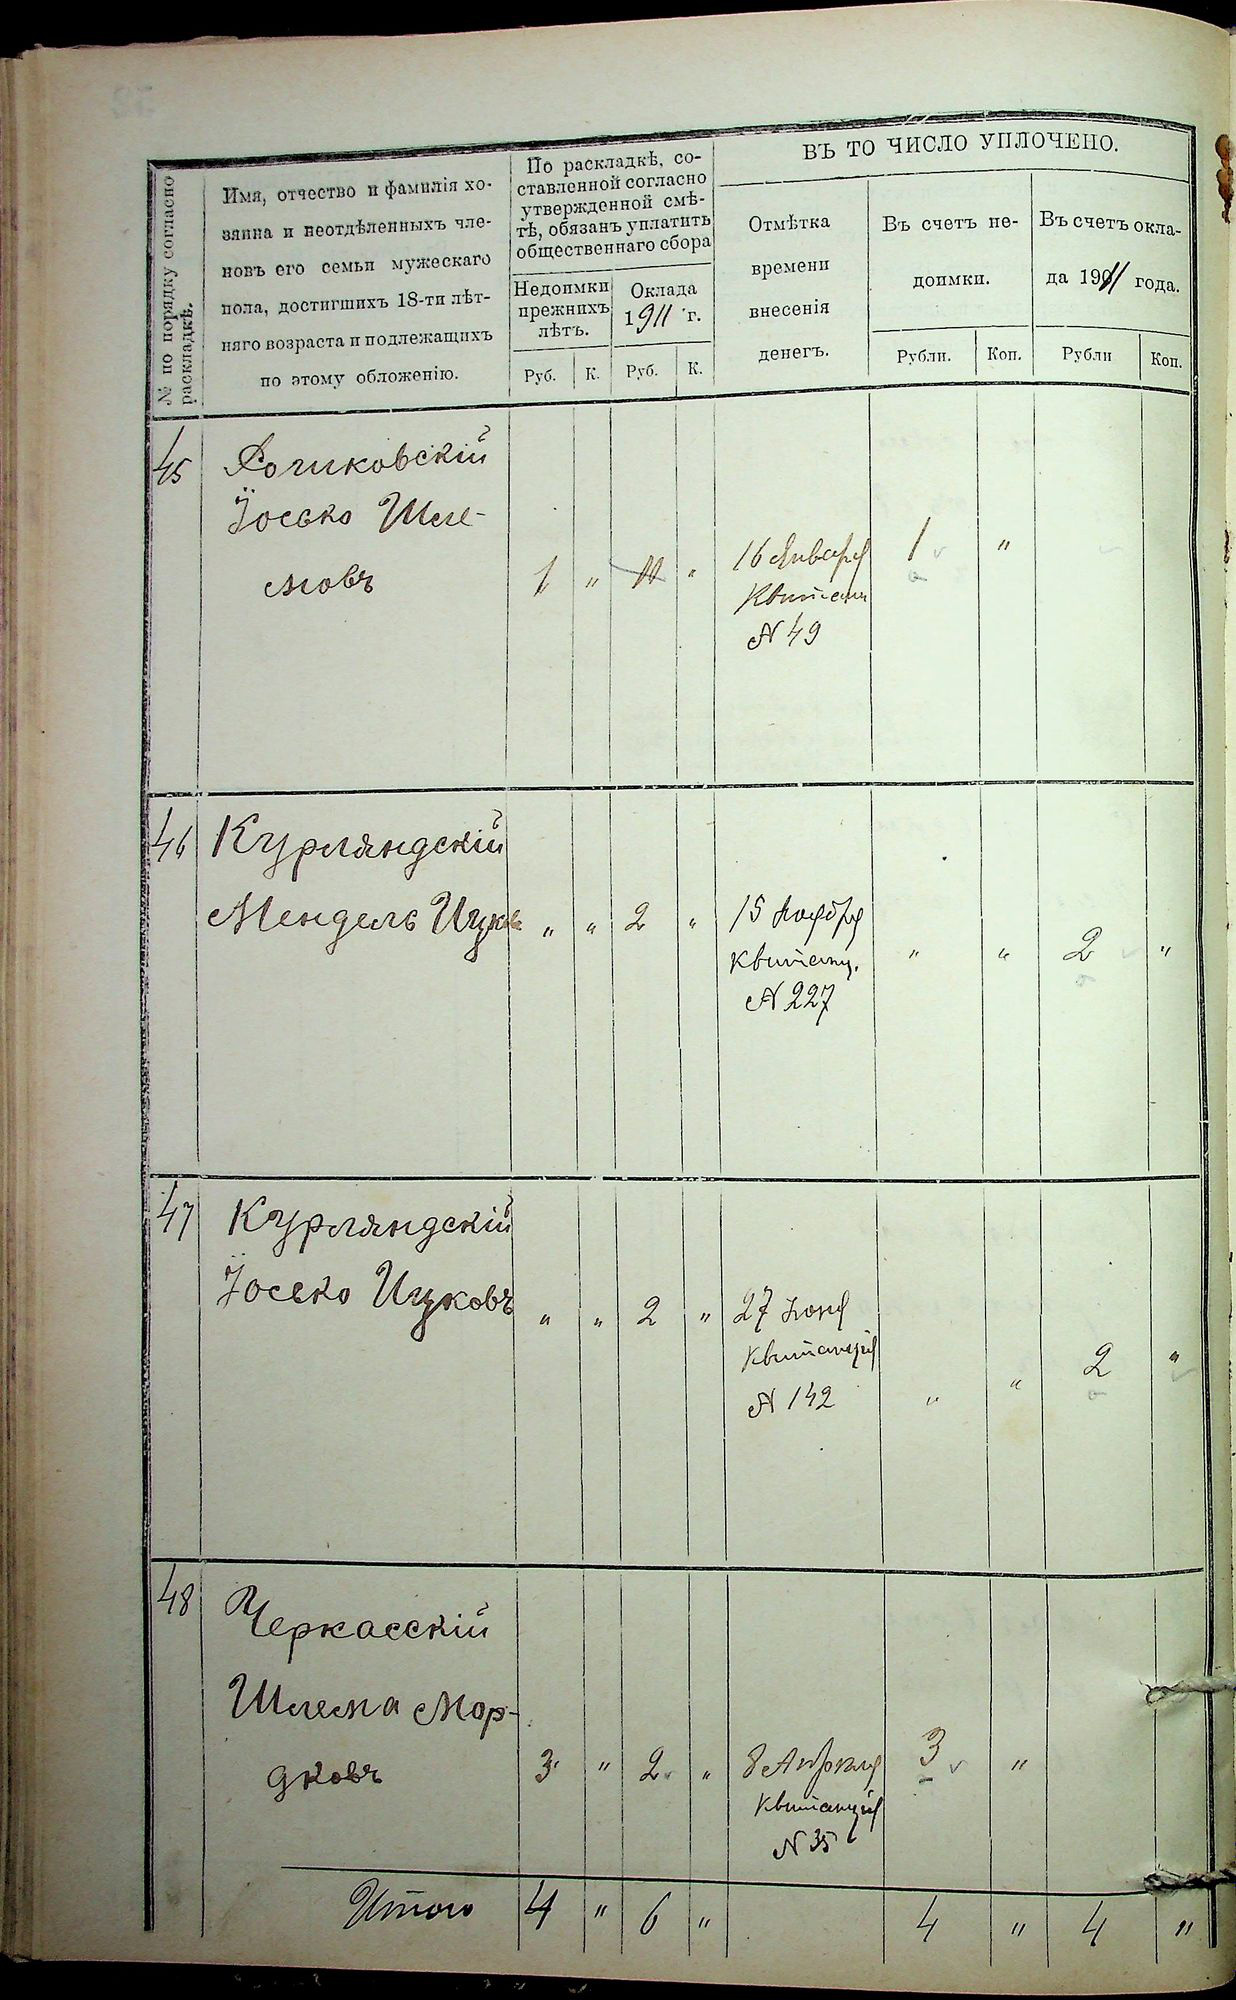 № по порядку согласно
раскладкѣ.
Имя, отчество и фамилія хо-
зяина и неотдѣленныхъ чле-
новъ его семьи мужескаго
пола, достигшихъ 18-ти лѣт-
няго возраста и подлежащихъ
по этому обложенію.
По раскладкѣ, со-
ставленной согласно
утвержденной смѣ-
тѣ, обязанъ уплатить
общественнаго сбора
Недоимки
прежнихъ
лѣтъ.
Оклада
1911 г.
Руб. К. Руб. К.
ВЪ ТО ЧИСЛО УПЛОЧЕНО.
Отмѣтка
времени
внесенія
денегъ.
Въ счетъ не-
доимки.
Въ счетъ окла-
да 1911 года.
Рубли. Коп. Рубли Коп.
45
Іосько Шле-
мовъ
1 " "
16 Января
Квитанц
№ 49
1 "
46 Курляндскій
Мендель Ицков
" " 2 "
15 Ноября
квитанц.
№ 227
" " 2 "
47 Курляндскій
Іосько Ицковъ
" " 2 "
27 Іюня
квитанція
№ 142
" " 2 "
48 Черкасскій
Шлема Мор-
дковъ
3 " 2 "
8 Апрѣля
квитанція
№ 35
3 "
Итого 4 " 6 " 4 " 4 "